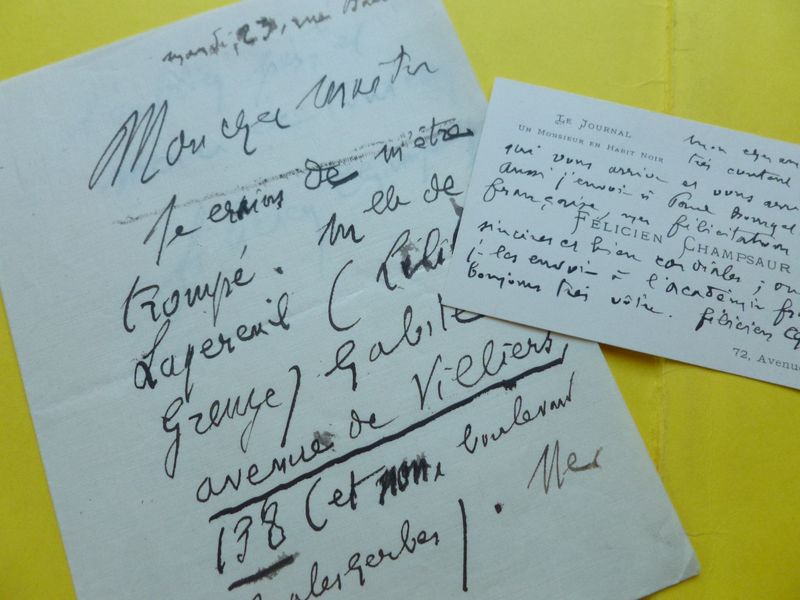 mardi, 23, rue
Mon cher maître
Je crains de m'être
trompé. Mlle de
Lapereuil (
Greuze) habite
avenue de Villiers,
138 (et non, boulevard
Malesherbes). Mes
LE JOURNAL
UN MONSIEUR EN HABIT NOIR
FÉLICIEN CHAMPSAUR
72, AVENUE
mon cher
très content
qui vous arrive et vous
aussi j'envoie à Paul Bourget
française, mes félicitations
sincères et bien cordiales ; ou
je les envoie à l'académie
bonjour très vôtre. Félicien